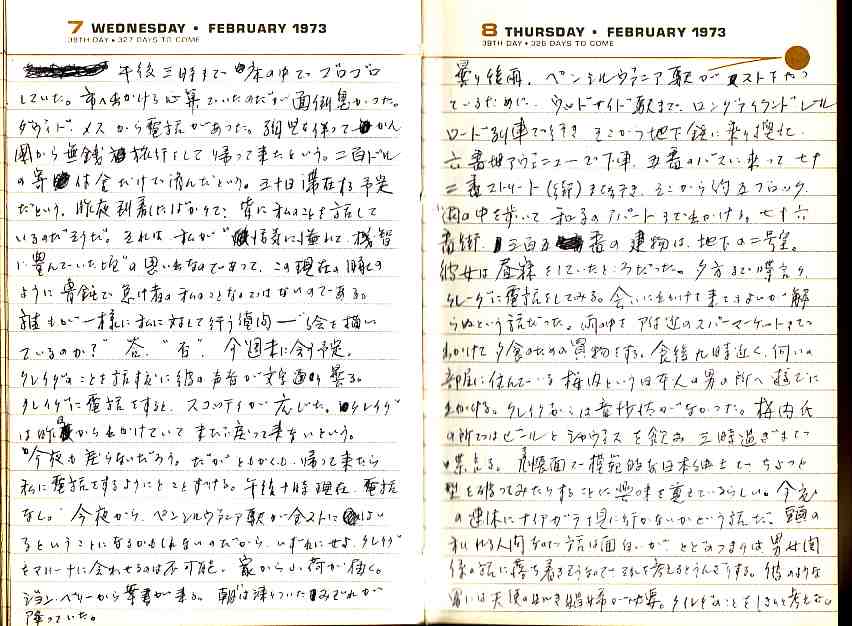 7 WEDNESDAY • FEBRUARY 1973
38TH DAY • 327 DAYS TO COME
午後三時まで 中でゴロゴロ
していた。市へ出かける心算でいたのだが面倒臭かった。
ダヴィド・メスから電話があった。
から無銭旅行をして帰って来たという。二百ドル
の だけで済んだという。五十日滞在する予定
だという。昨夜到着したばかりで、皆に私のことを話して
いるのだそうだ。それは、私が
に豊んでいた頃の思い出なのであって、この現在の豚の
ように愚鈍で怠け者の私のことなのではないのである。
誰もが一様に私に対して行う質問―"絵を描い
ているのか?" 答、"否"。今週末に会う予定。
クレイグのことを話す度に彼の声音が 曇る。
クレイグに電話をすると、スコッティが応じた。クレイグ
は昨夜から出かけていてまだ戻って来ないという。
"今夜も戻らないだろう。だがともかくも、帰って来たら
私に電話をするようにとことずける。午後十時現在、電話
なし。今夜から、ペンシルヴァニア駅が全ストにはい
るということになるかもしれないのだから、いずれにせよ、クレイグ
をマリーナに会わせるのは不可能。家から小荷が届く。
ジョン・ベリーから葉書が来る。朝は凍りついたみぞれが
降っていた。
8 THURSDAY • FEBRUARY 1973
39TH DAY • 326 DAYS TO COME
曇り後雨。ペンシルヴァニア駅がストをやっ
ているために、ウッドサイド駅まで、ロングアイランド レル
ロード列車で行き そこから地下鉄に乗り換え、
六番地アヴェニューで下車、五番のバスに乗って七十
二番ストリート(街)まで行き、そこから約五ブロック
雨の中を歩いて 和子のアパートまで出かける。七十六
番街、三百五 番の建物は、地下の二号室。
彼女は昼寝をしていたところだった。夕方まで喋言り、
クレーグに電話をしてみる。会いに出かけて来てもよいか解
らぬという話だった。雨の中をアパ近のスーパーマーケットまで
出かけて夕食のための買物をする。食後九時近く、向いの
部屋に住んでいる梅内という日本人の男の所へ揃って
出かける。クレイグからは音沙汰がなかった。梅内氏
の所ではビールとジュウスを飲み、三時過ぎまで
喋言る。 で模範的な日本紳士でちょっと
型を破ってみたりすることに興味を覚えているらしい。今度
の連休にナイアガラを見に行かないかという話だ。頭の
きれる人間なので話は面白いが、ととのつまりは男女関
係の話に落ち着きそうなので、それを考えるとうんざりする。彼のような
男には天使のような娼婦が必要。クレイグのことを